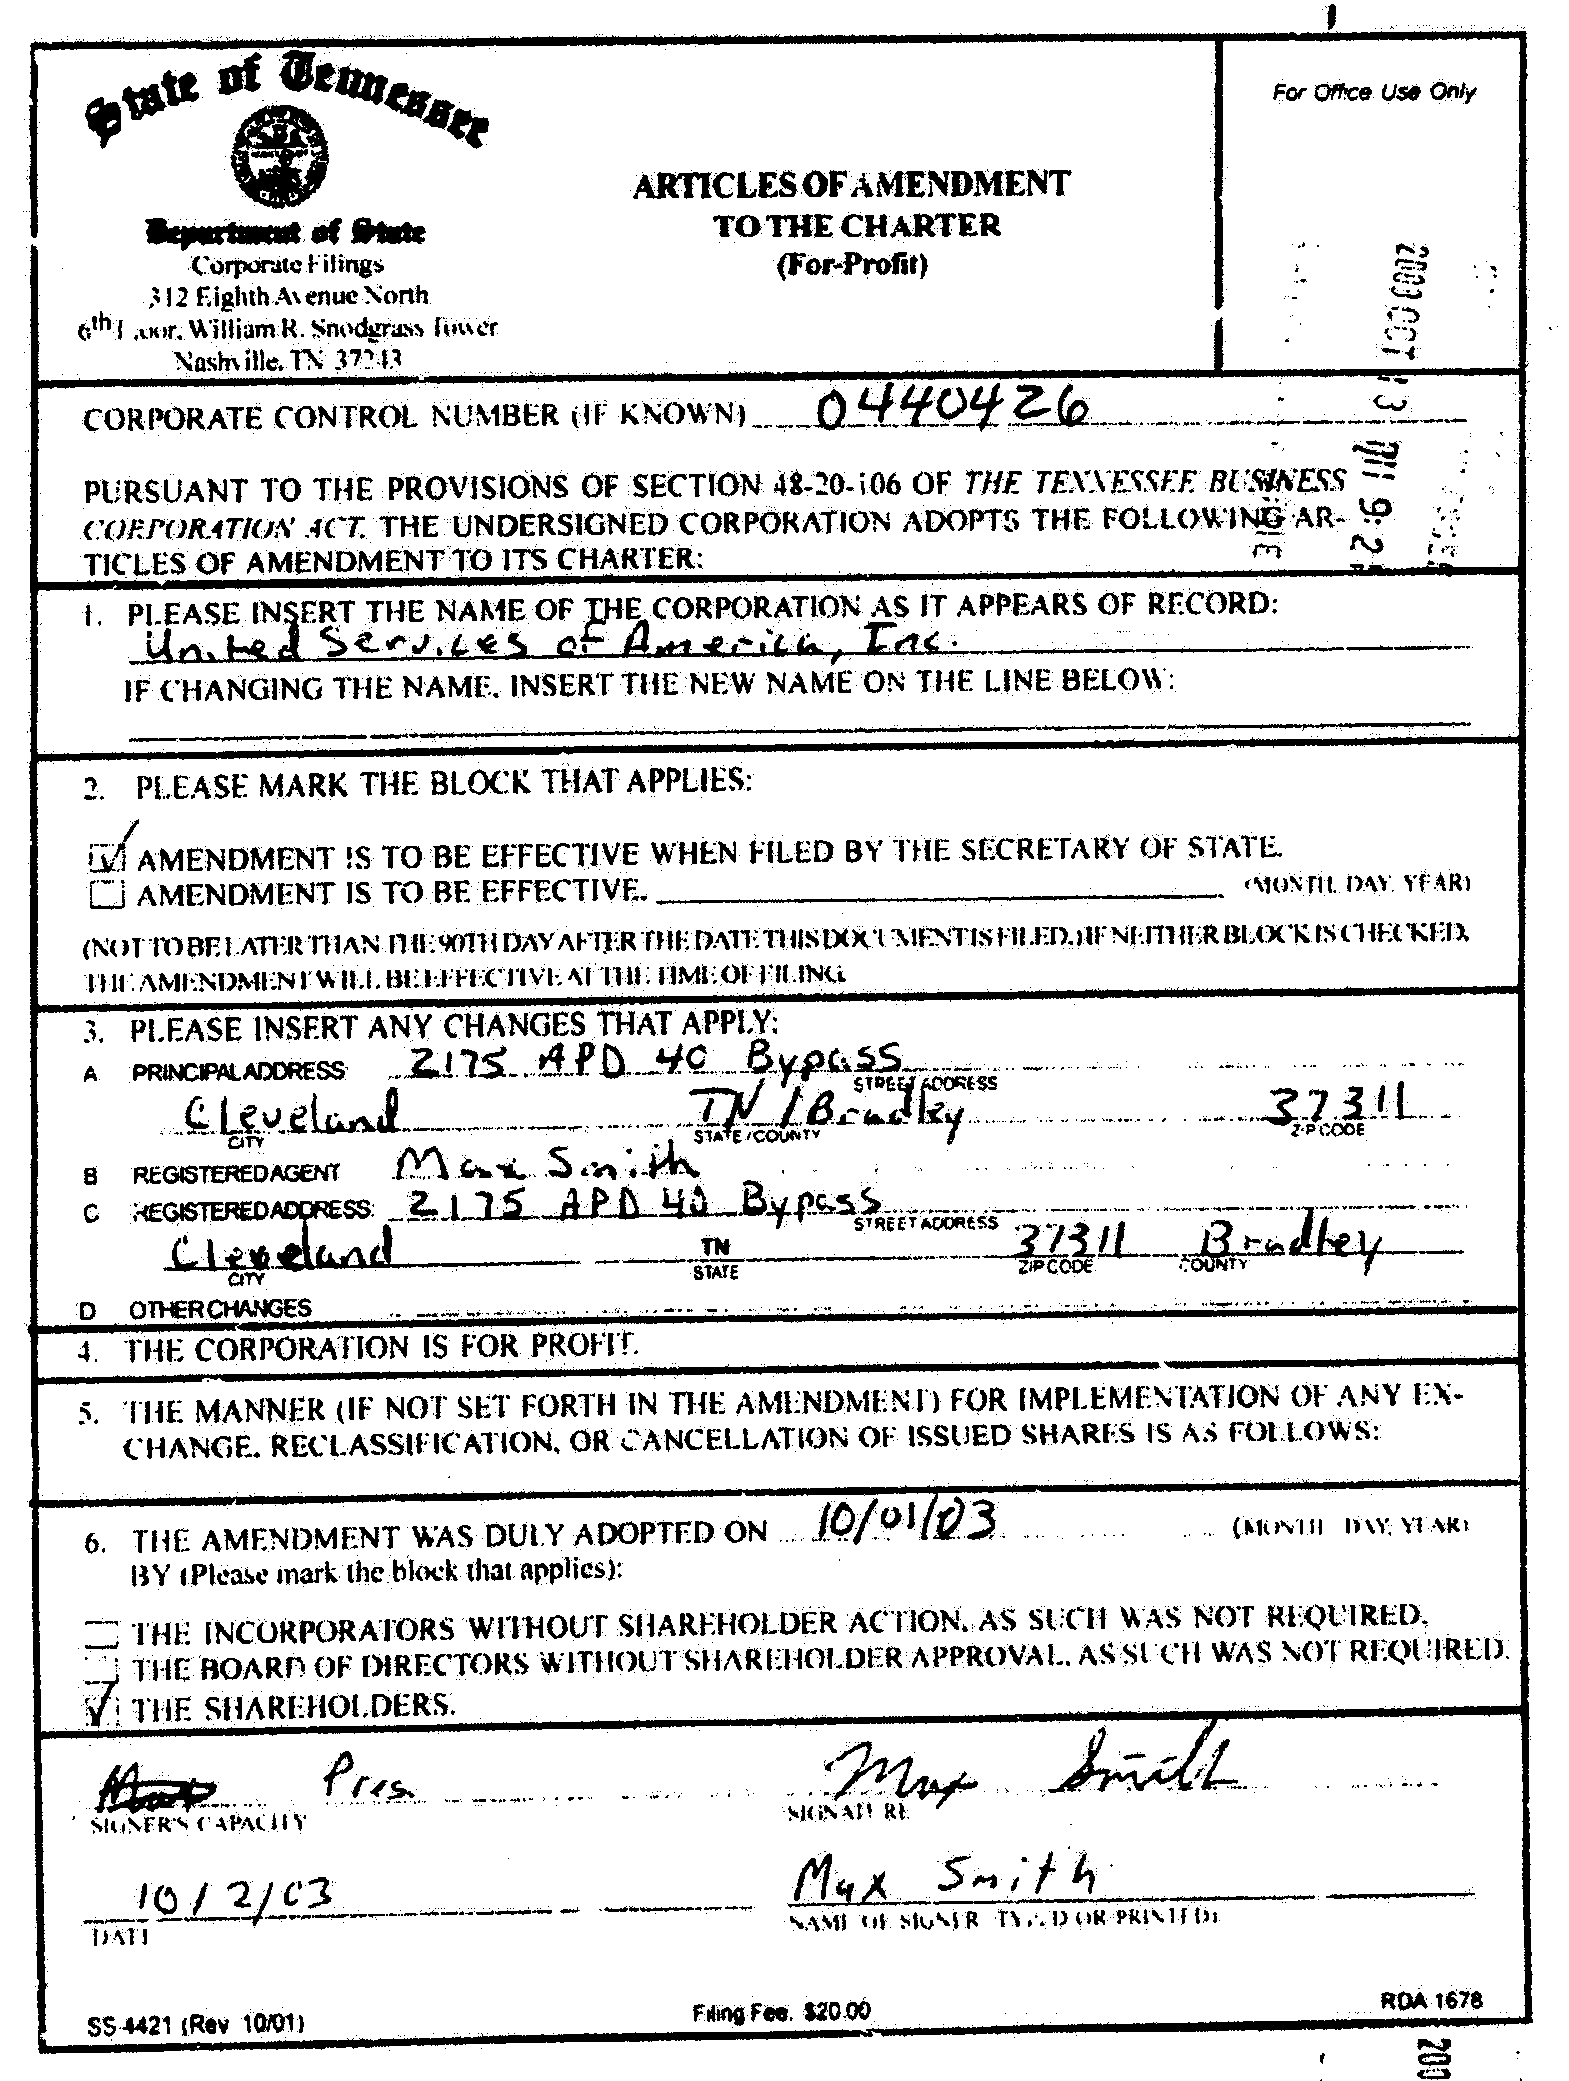 State of Tennessee
Department of State
Corporate Filings
312 Eighth Avenue North
6th Floor, William R. Snodgrass Tower
Nashville, TN 37243
ARTICLES OF AMENDMENT
TO THE CHARTER
(For-Profit)
For Office Use Only
2003 OCT
CORPORATE CONTROL NUMBER (IF KNOWN) 0440426
PURSUANT TO THE PROVISIONS OF SECTION 48-20-106 OF THE TENNESSEE BUSINESS
CORPORATION ACT, THE UNDERSIGNED CORPORATION ADOPTS THE FOLLOWING AR-
TICLES OF AMENDMENT TO ITS CHARTER:
1. PLEASE INSERT THE NAME OF THE CORPORATION AS IT APPEARS OF RECORD:
United Services of America, Inc.
IF CHANGING THE NAME, INSERT THE NEW NAME ON THE LINE BELOW:
2. PLEASE MARK THE BLOCK THAT APPLIES:
AMENDMENT IS TO BE EFFECTIVE WHEN FILED BY THE SECRETARY OF STATE.
AMENDMENT IS TO BE EFFECTIVE, (MONTH, DAY, YEAR)
(NOT TO BE LATER THAN THE 90TH DAY AFTER THE DATE THIS DOCUMENT IS FILED.) IF NEITHER BLOCK IS CHECKED,
THE AMENDMENT WILL BE EFFECTIVE AT THE TIME OF FILING.
3. PLEASE INSERT ANY CHANGES THAT APPLY:
A PRINCIPAL ADDRESS 2175 APD 40 Bypass
STREET ADDRESS
Cleveland TN / Bradley 37311
CITY STATE / COUNTY ZIP CODE
B REGISTERED AGENT Max Smith
C REGISTERED ADDRESS: 2175 APD 40 Bypass
STREET ADDRESS
Cleveland TN 37311 Bradley
CITY STATE ZIP CODE COUNTY
D OTHER CHANGES
4. THE CORPORATION IS FOR PROFIT.
5. THE MANNER (IF NOT SET FORTH IN THE AMENDMENT) FOR IMPLEMENTATION OF ANY EX-
CHANGE, RECLASSIFICATION, OR CANCELLATION OF ISSUED SHARES IS AS FOLLOWS:
6. THE AMENDMENT WAS DULY ADOPTED ON 10/01/03 (MONTH DAY, YEAR)
BY (Please mark the block that applies):
THE INCORPORATORS WITHOUT SHAREHOLDER ACTION, AS SUCH WAS NOT REQUIRED.
THE BOARD OF DIRECTORS WITHOUT SHAREHOLDER APPROVAL, AS SUCH WAS NOT REQUIRED.
THE SHAREHOLDERS.
Pres. Max Smith
SIGNER'S CAPACITY SIGNATURE
10/2/03 Max Smith
DATE NAME OF SIGNER (TYPED OR PRINTED)
SS-4421 (Rev 10/01) Filing Fee. $20.00 RDA 1678